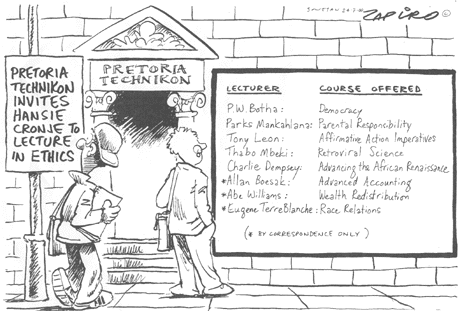 ZAPIRO ©
PRETORIA
TECHNIKON
INVITES
HANSIE
CRONJE TO
LECTURE
IN ETHICS
PRETORIA
TECHNIKON
LECTURER COURSE OFFERED
P.W. Botha: Democracy
Parks Mankahlana: Parental Responsibility
Tony Leon: Affirmative Action Imperatives
Thabo Mbeki: Retroviral Science
Charlie Dempsey: Advancing the African Renaissance
*Allan Boesak: Advanced Accounting
*Abe Williams: Wealth Redistribution
*Eugene TerreBlanche: Race Relations
(* BY CORRESPONDENCE ONLY)